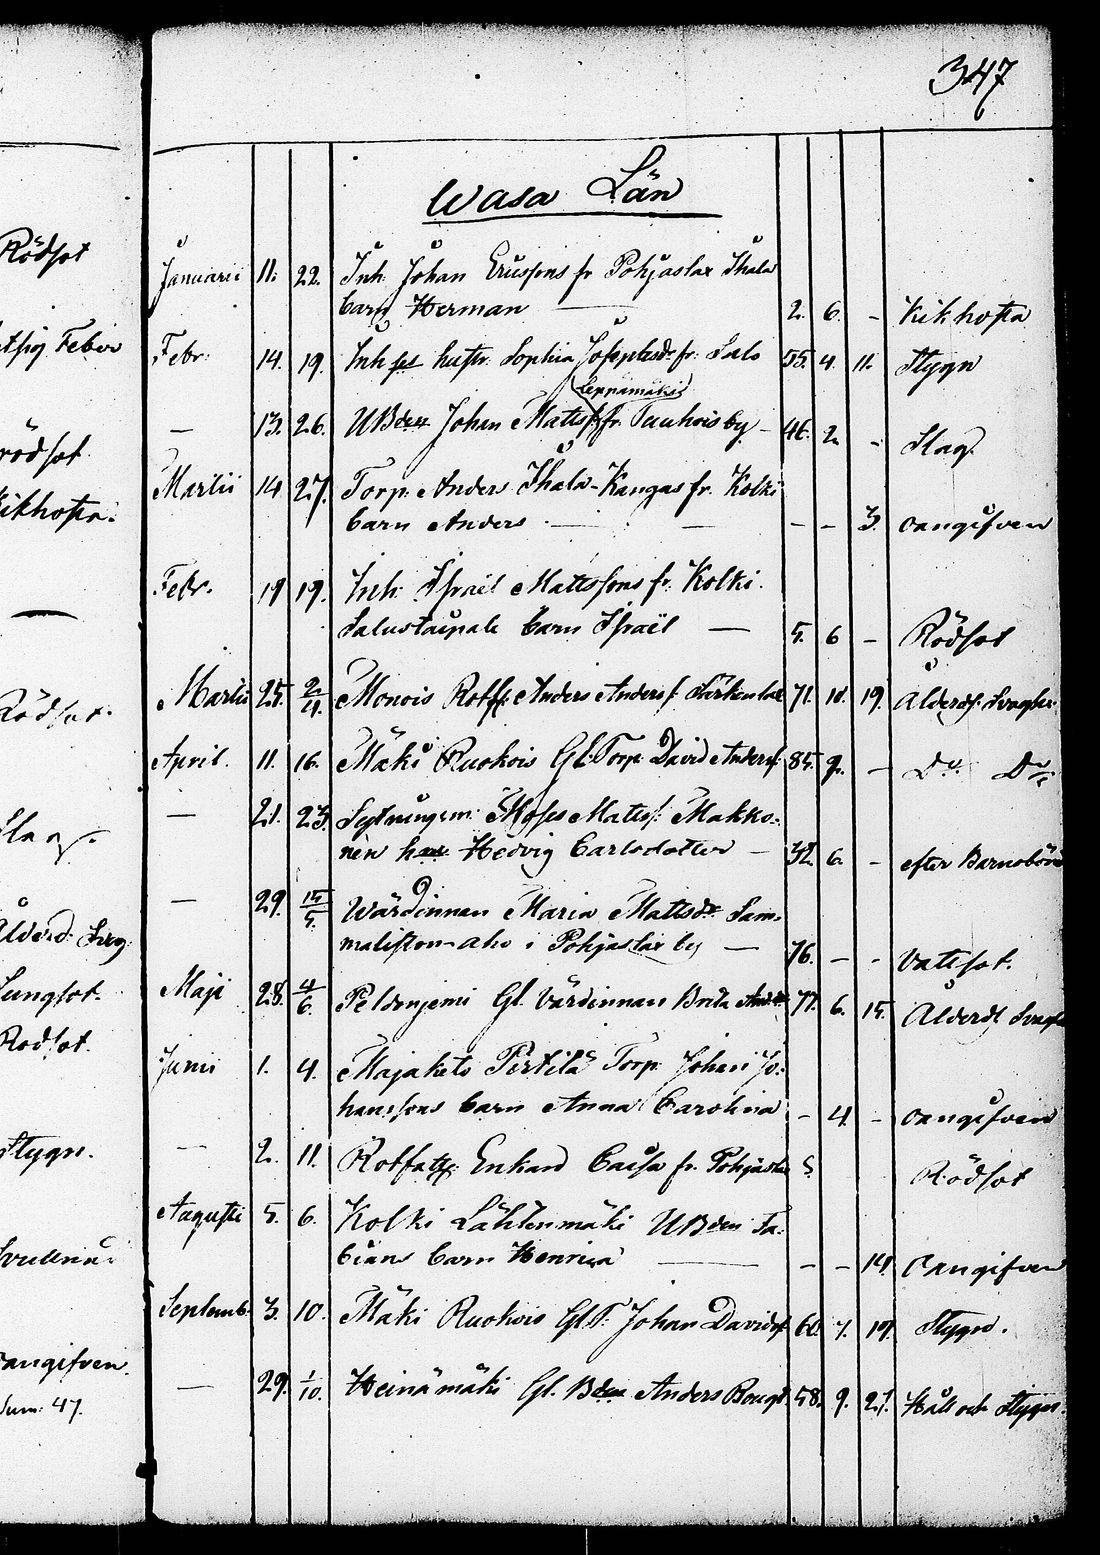 347
Rödsot
Feber
rödsot
Kikhosta
Rödsot
Slag
Ålderd. Svag.
Lungsot.
Rödsot.
Stygn.
oangifven.
Sum: 47.
Wasa Län
Januarii 11. 22. Inh. Johan Ericssons fr Pohjaslax Ihala
barn Herman — 2. 6. - Kikhosta
Febr: 14. 19. Inh hustr. Sophia Josephsdr fr: Salo 55. 4. 11. Stygn
(Leppämäki)
— 13. 26. UBden Johan Mattss. fr. by - 46. 2. - Slag.
Martii 14 27. Torp. Anders Ihala-Kangas fr. Kolki
barn Anders — — - - 3. oangifven
Febr. 19 19. Inh. Israel Mattssons fr. Kolki
barn Israël — 5. 6 - Rödsot
Martii 25. 2/4. Monois Anders Anderss. 71. 10. 19. Ålderds. Svaghet
April. 11. 16. Mäki Ruokois Gl. Torp. David Anderss. 85. 9. — Do Do
— 21. 23. Sytningsm. Moses Matts. Makko-
nen Hedvig Carlsdotter — 32. 6. - efter Barnsbörd
— 29. 15/5. Wärdinnan Maria Mattsdr Sam-
aho i Pohjaslax by — 76. - - Vattsot.
Maji 28. 4/6. Peldonjemi Gl. Värdinnan Brita 77. 6. 15. Ålderds Svagh
Junii 1. 4. Majakets Pertilä Torp. Johan Jo-
hanssons barn Anna Carolina - 4. - oangifven
— 2. 11. Enkan Caisa fr. Pohjaslax Rödsot
Augusti 5. 6. Kolki Lähtenmäki UBden Fa-
bians barn Henrica — - - 14. Oangifven
Septemb. 3. 10. Mäki Ruokois Gl. T. Johan Davids. 60. 7. 19. Stygn.
— 29. 1/10. Heinämäki Gl. Bden Anders Bengts. 58. 9. 21. Håll och Stygn.